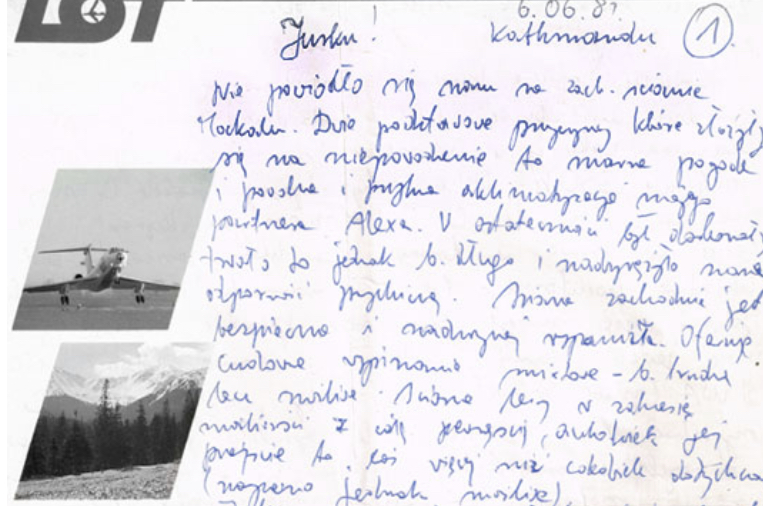 LOT
6.06.81
Jurku!
Kathmandu 1.
Nie powiodło się nam na zach. ścianie
Makalu. Dwie podstawowe przyczyny które złożyły
się na niepowodzenie to marna pogoda
i powolna i aklimatyzacja mojego
partnera Alexa. W ostateczności był doskonały
trwało to jednak b. długo i nadwyrężyło naszą
odporność psychiczną. Ściana zachodnia jest
bezpieczna i nadzwyczaj wspaniała. Oferuje
cudowne wspinanie mixtowe - b. trudne
lecz możliwe. Ściana leży w zakresie
możliwości z całą pewnością, aczkolwiek jej
przejście to coś więcej niż cokolwiek dotychczas
(naprawdę jednak możliwe)